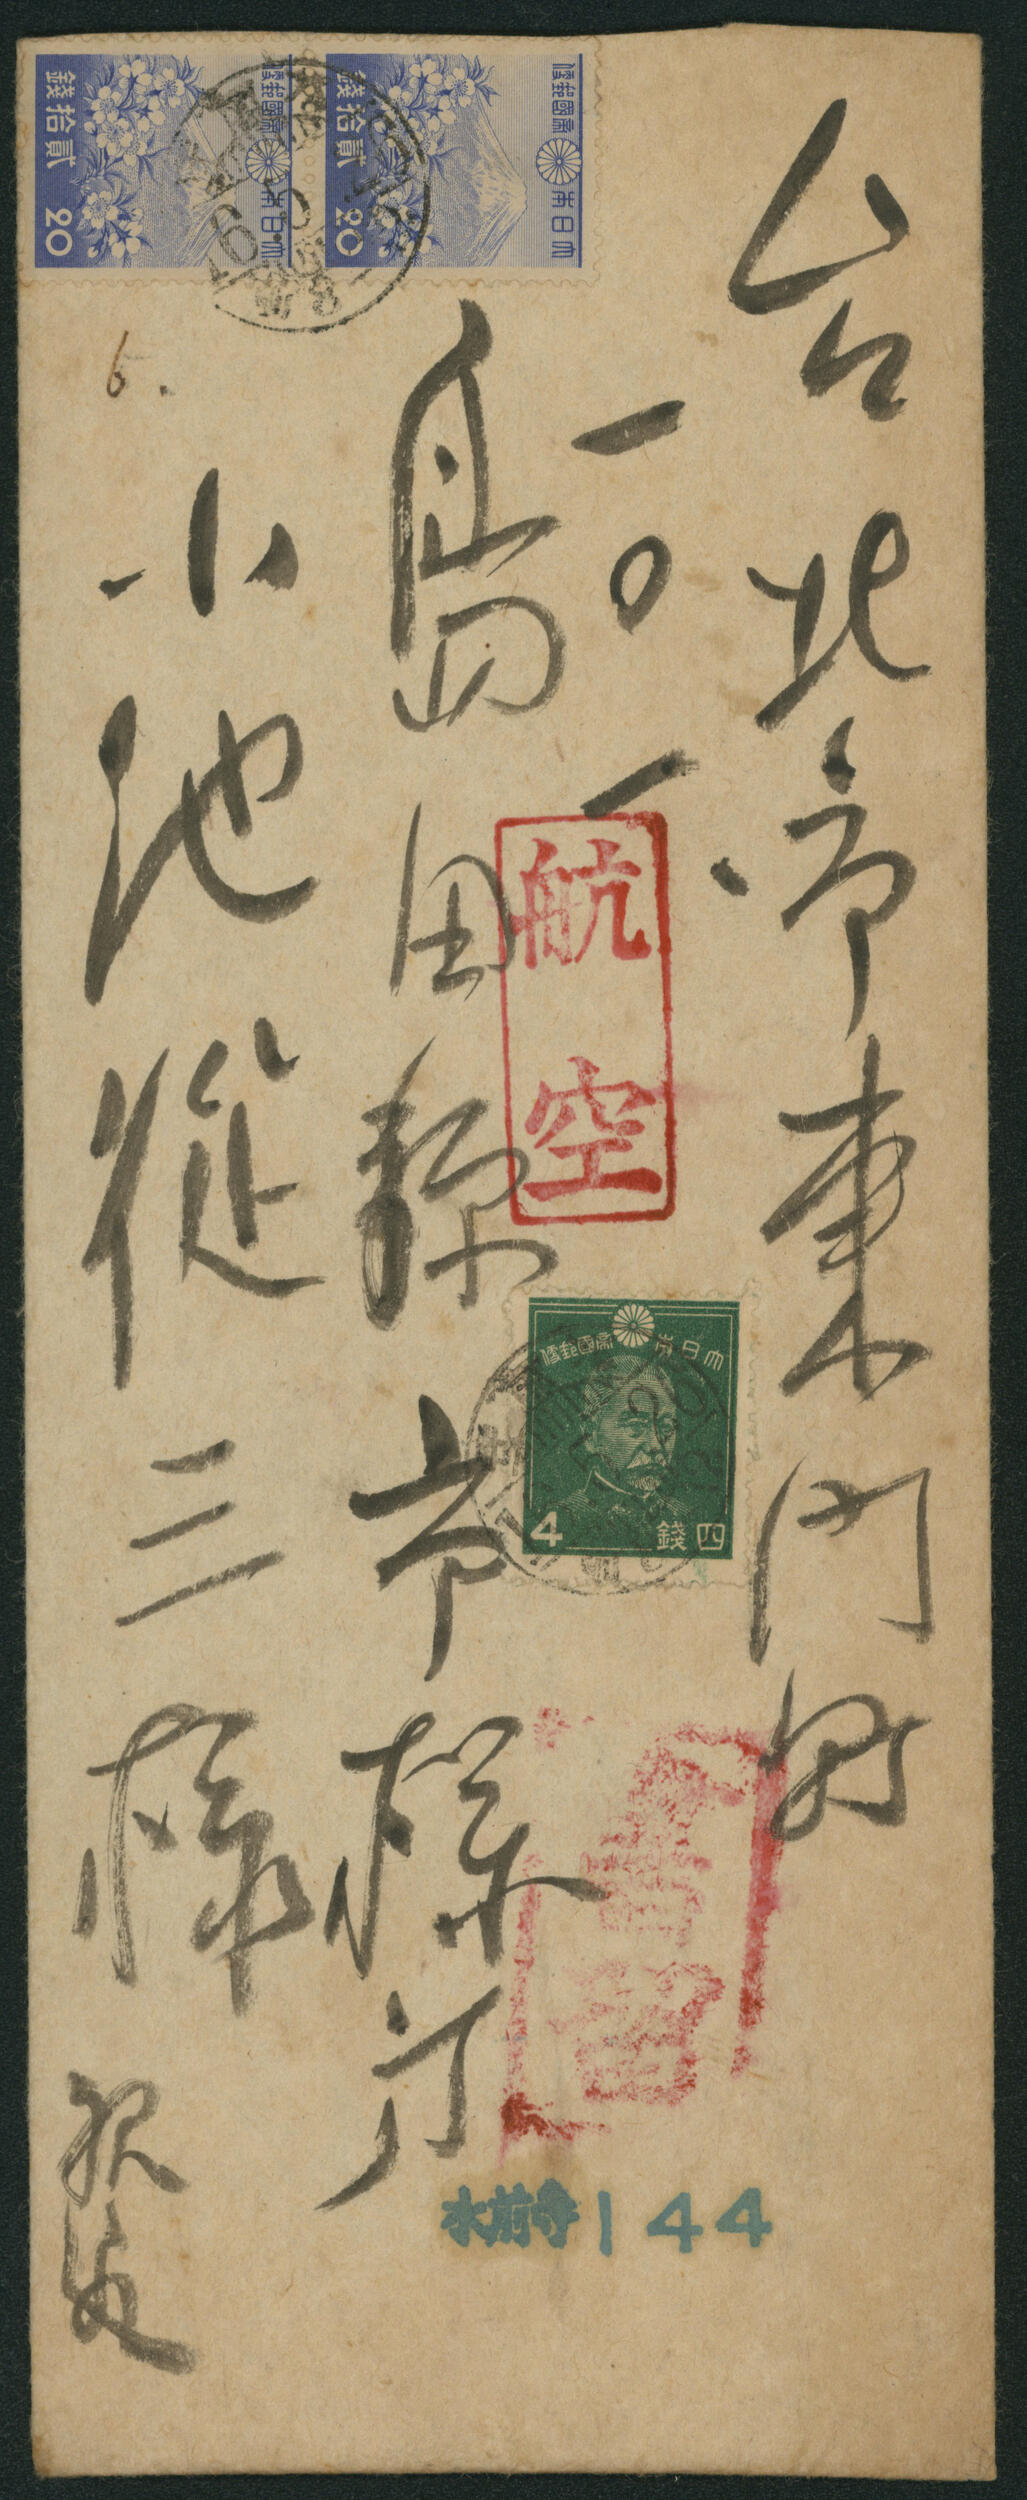 台北市東門町
一〇一
島田
市様方
小池従三様
親展
航空
書留
水前寺 144
大日本帝國郵便
貳拾錢
20
大日本帝國郵便
貳拾錢
20
大日本帝國郵便
4
四錢
6.